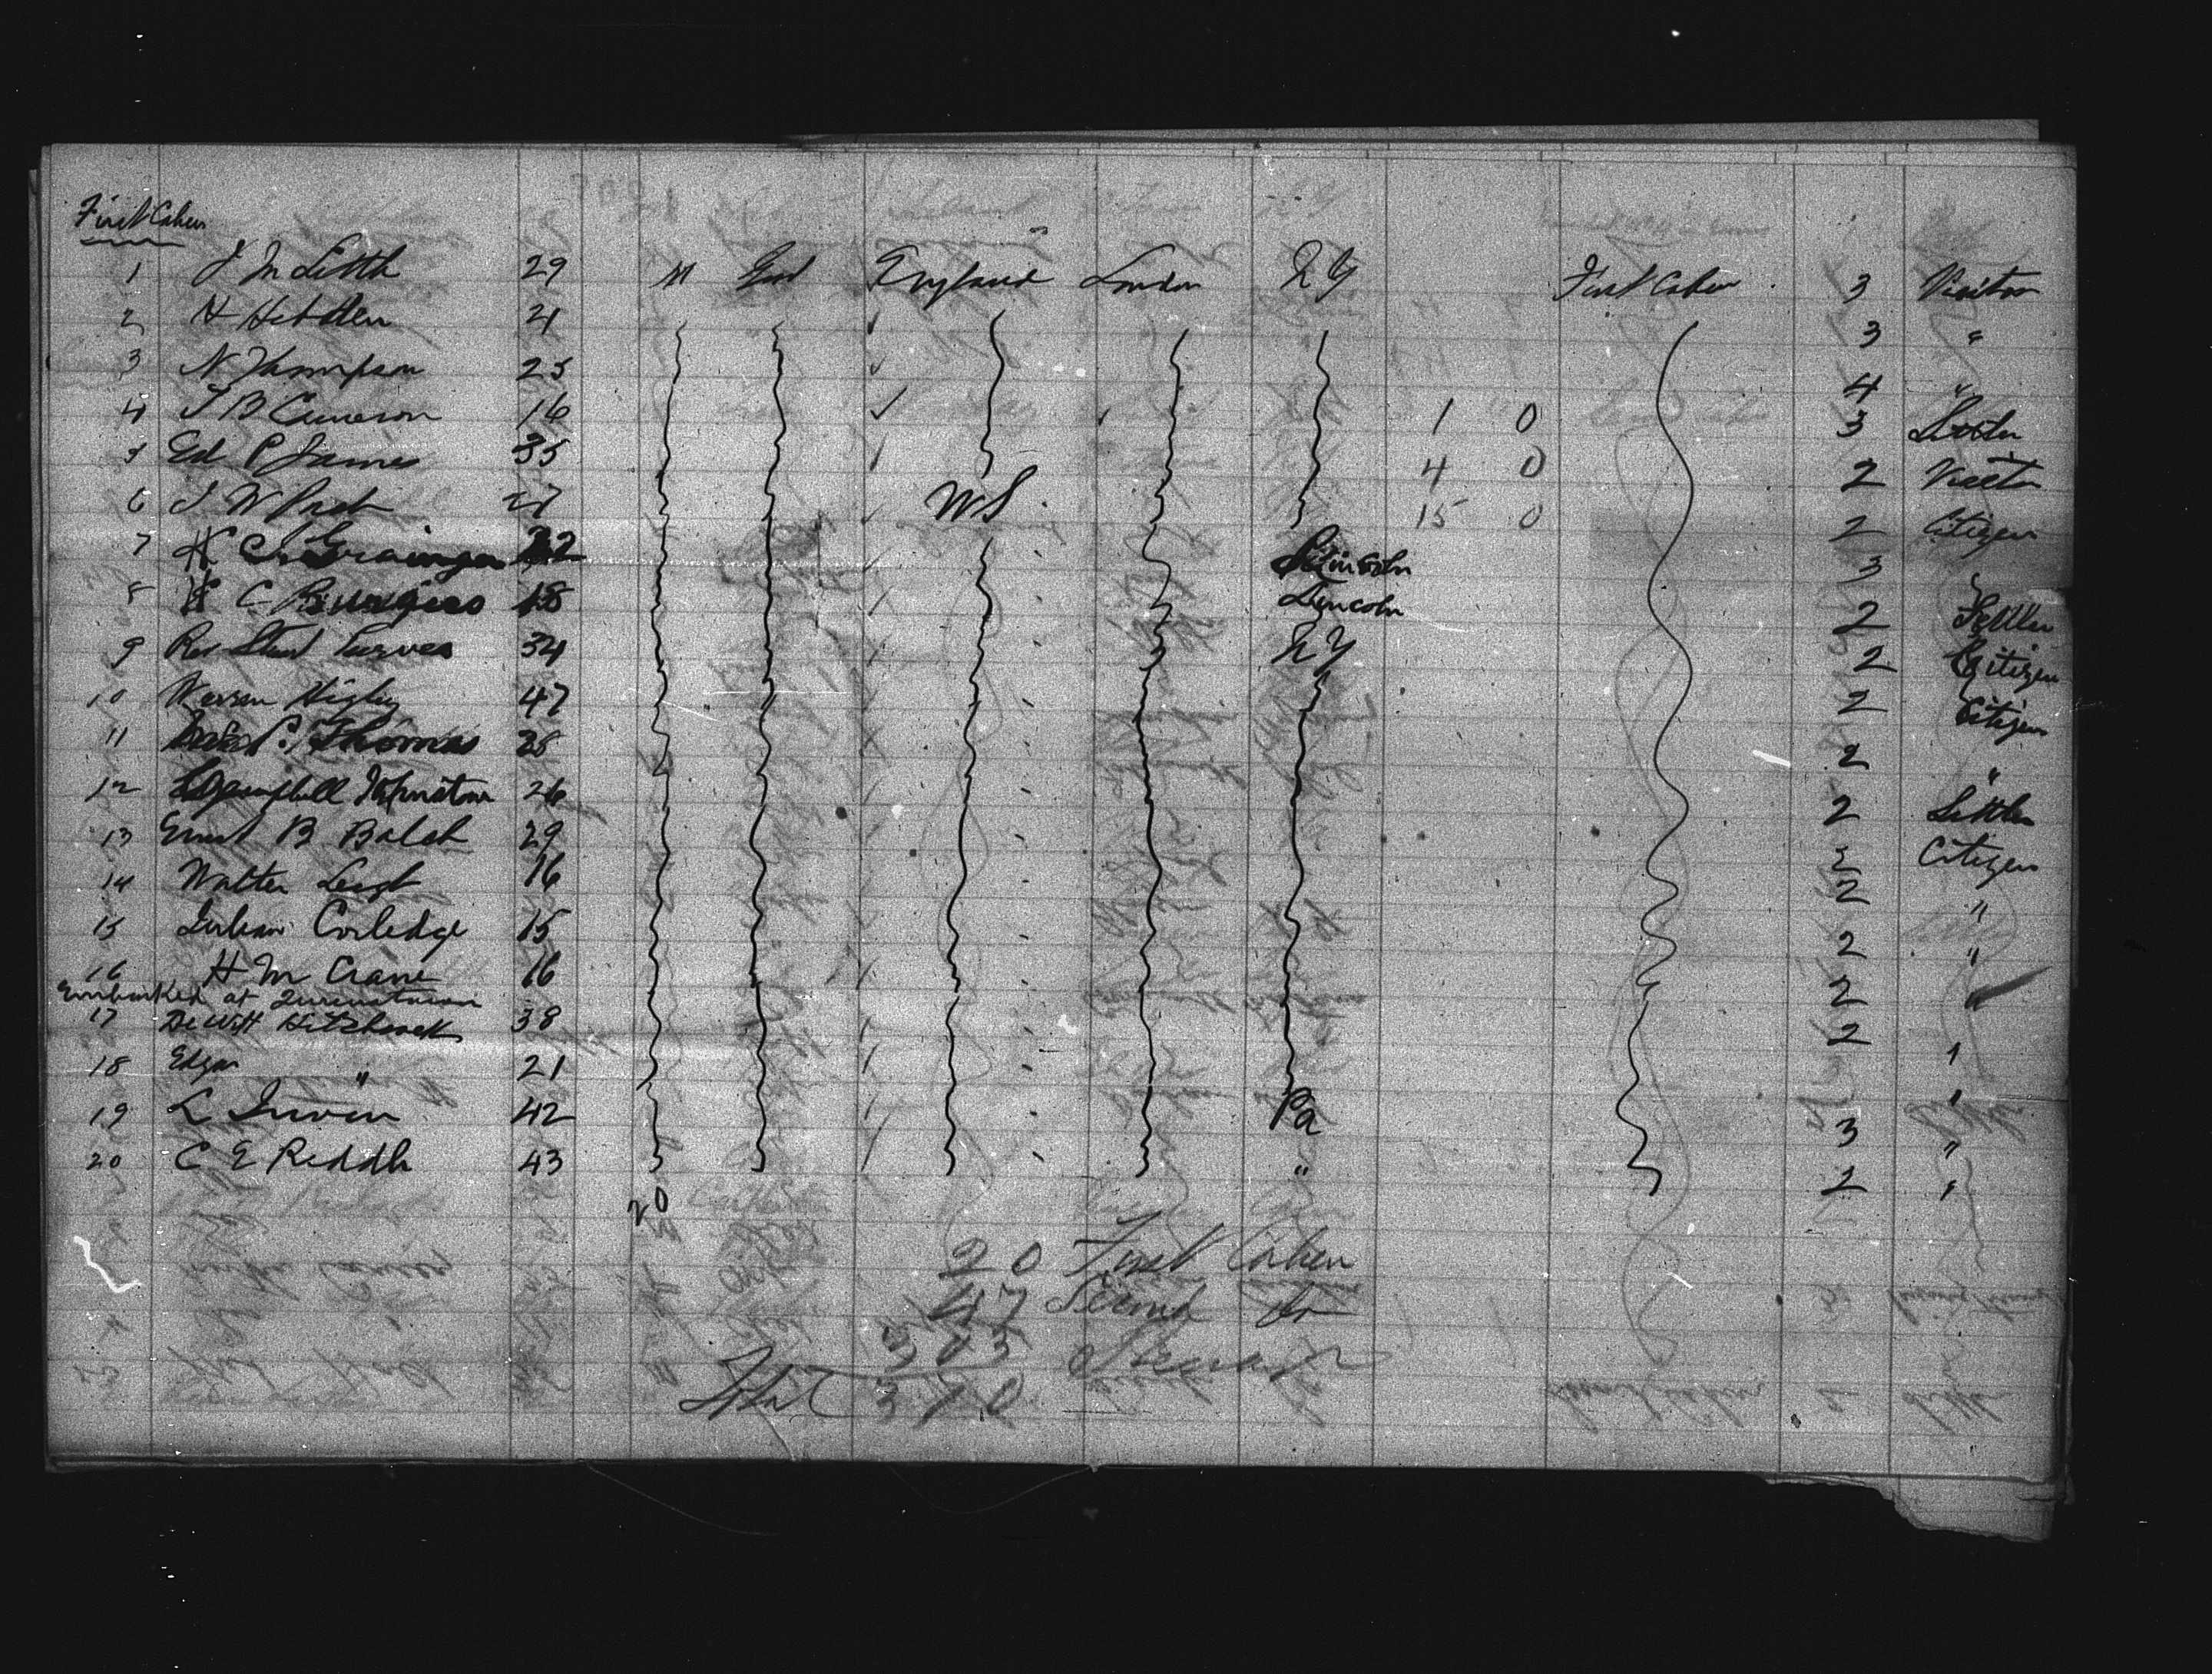 First Cabin
1 J M Little 29 M Gent England London N Y First Cabin 3 Visitor
2 H Hebden 21 3 "
3 N Thompson 25 4 "
4 J B Cameron 16 1 0 3 Settler
5 Ed P James 35 4 0 2 Visitor
6 J W 27 U S 15 0 2 Citizen
7 H C Grainger 22 Lincoln 3
8 C Burgess 18 Lincoln 2 Settler
9 Rev 34 N Y 2 Citizen
10 Warren Higley 47 2 Citizen
11 Thomas 28 2 "
12 Campbell Johnston 26 2 Settler
13 Ernest B Balch 29 2 Citizen
14 Walter 16 2 "
15 Corledge 15 2 "
16 H M Crane 16 2 "
Embarked at Queenstown
17 De Witt Hitchcock 38 2 "
18 Edgar " 21 "
19 L Irwin 42 Pa 3 "
20 C E Riddle 43 " 2 "
20
20 First Cabin
47 Second do
303 Steerage
Total 370